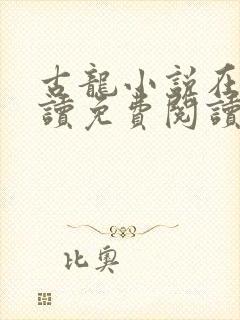 古龍小說在
讀免費閱讀
比奧